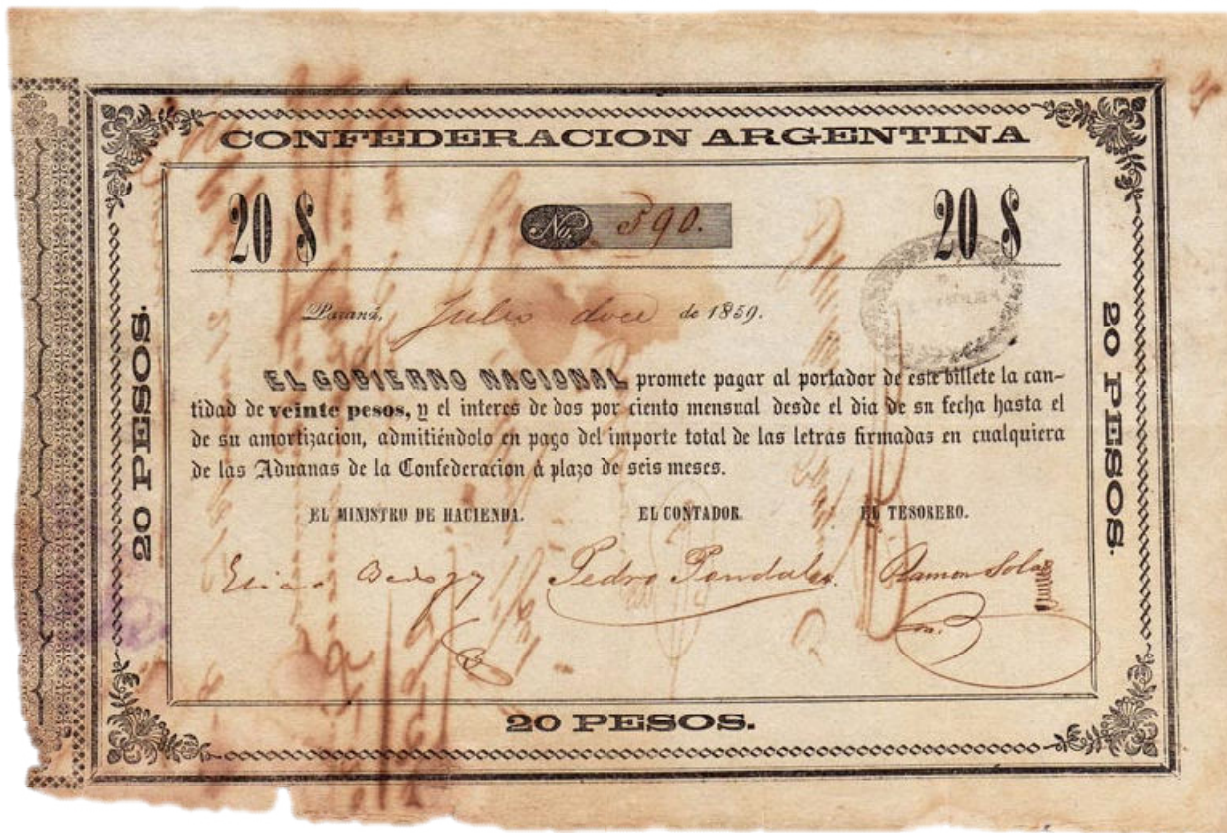 CONFEDERACION ARGENTINA
20 $ No. 590. 20 $
Paraná, Julio doce de 1859.
EL GOBIERNO NACIONAL promete pagar al portador de este billete la can-
tidad de veinte pesos, y el interes de dos por ciento mensual desde el dia de su fecha hasta el
de su amortizacion, admitiéndolo en pago del importe total de las letras firmadas en cualquiera
de las Aduanas de la Confederacion á plazo de seis meses.
EL MINISTRO DE HACIENDA. EL CONTADOR. EL TESORERO.
Elias Bedoya Pedro Pondal Ramon Sola
20 PESOS.
20 PESOS.
20 PESOS.